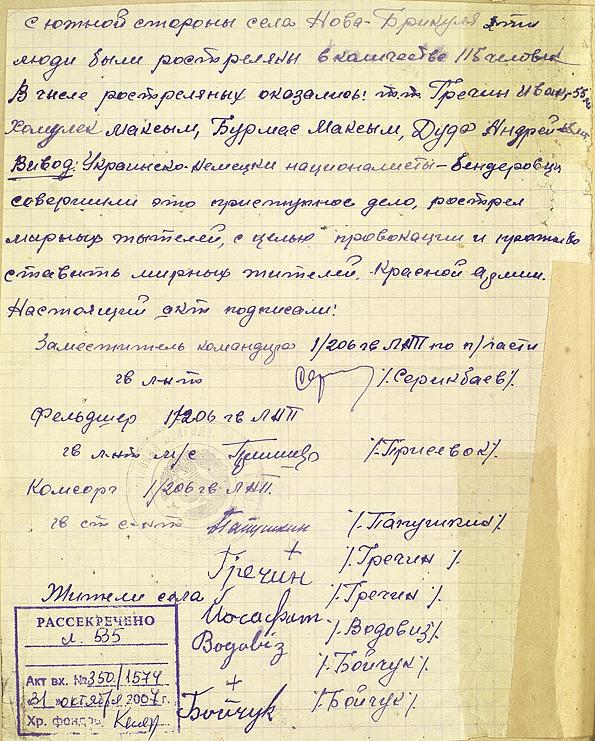 с южной стороны села Нова-Брикуля эти
люди были ростреляны в количестве 115 человек
В числе ростреляных оказались: т.т. Гречин Иван-55 л.
Хомулек Максым, Бурмас Максым, Дуда Андрей
Вивод: Украинско-немецки националисты-бендеровци
совершили это приступное дело, рострел
мирных жытелей, с целью провокации и противо
ставить мирных жителей. Красной армии.
Настоящий акт подписали:
Заместитель командира 1/206 гв ЛАП по п/части
гв л-нт /.Серикбаев/.
Фельдшер 1/206 гв ЛАП
гв л-нт м/с /.Присевок/.
Комсорг 1/206 гв ЛАП.
гв ст с-нт Папушкин /.Папушкин/.
+
Гречин /.Гречин/.
Жители села Йосафат /.Гречин/.
Водовіз /.Водовиз/.
/.Бойчук/.
+
Бойчук /.Бойчук/.
РАССЕКРЕЧЕНО
л. 535
Акт вх. № 350/1574
31 октября 2007 г.
Хр. фондов